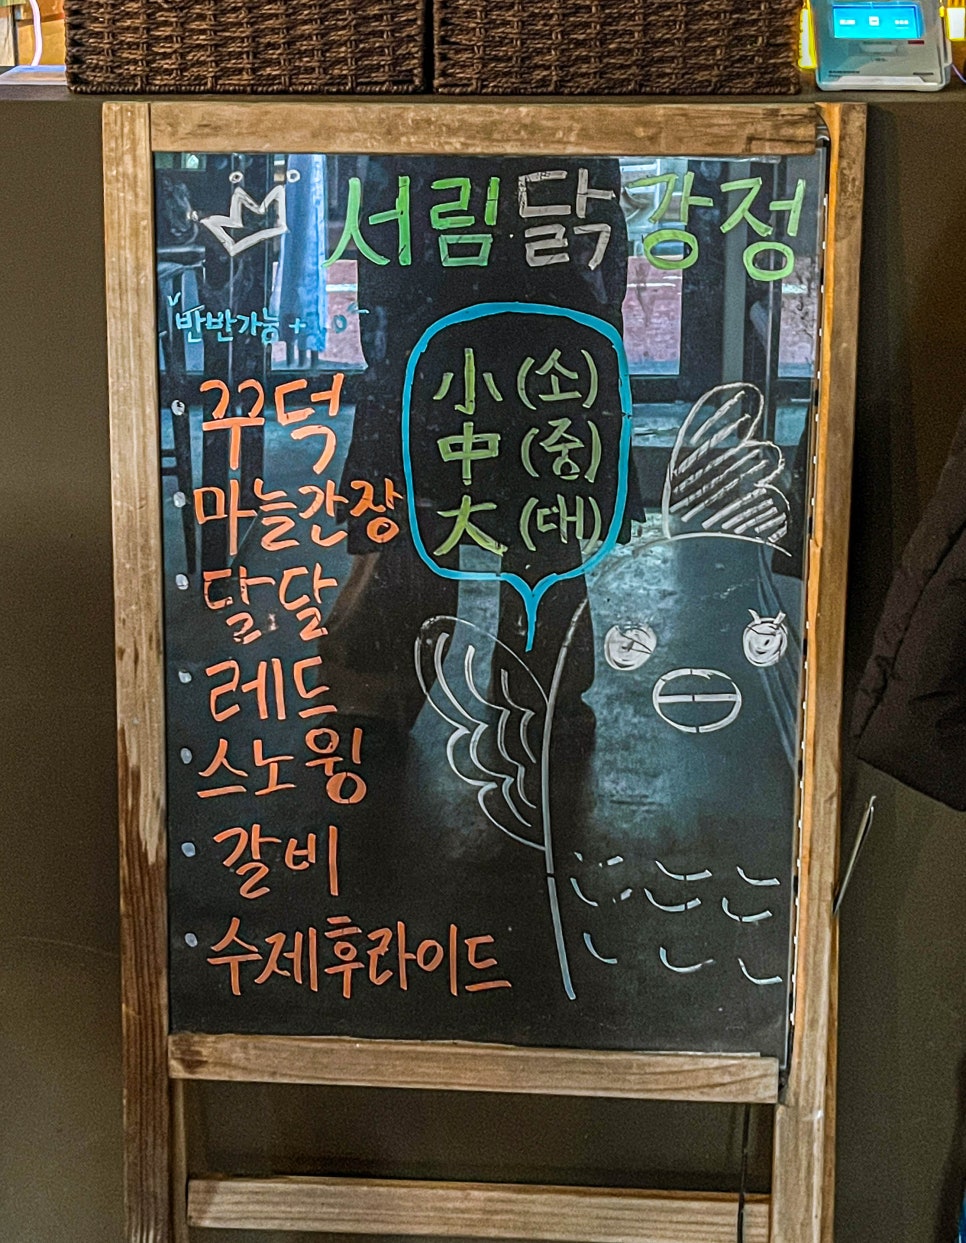 서림닭강정
반반가능 +
小 (소)
中 (중)
大 (대)
꾸덕
마늘간장
달달
레드
스노윙
갈비
수제후라이드